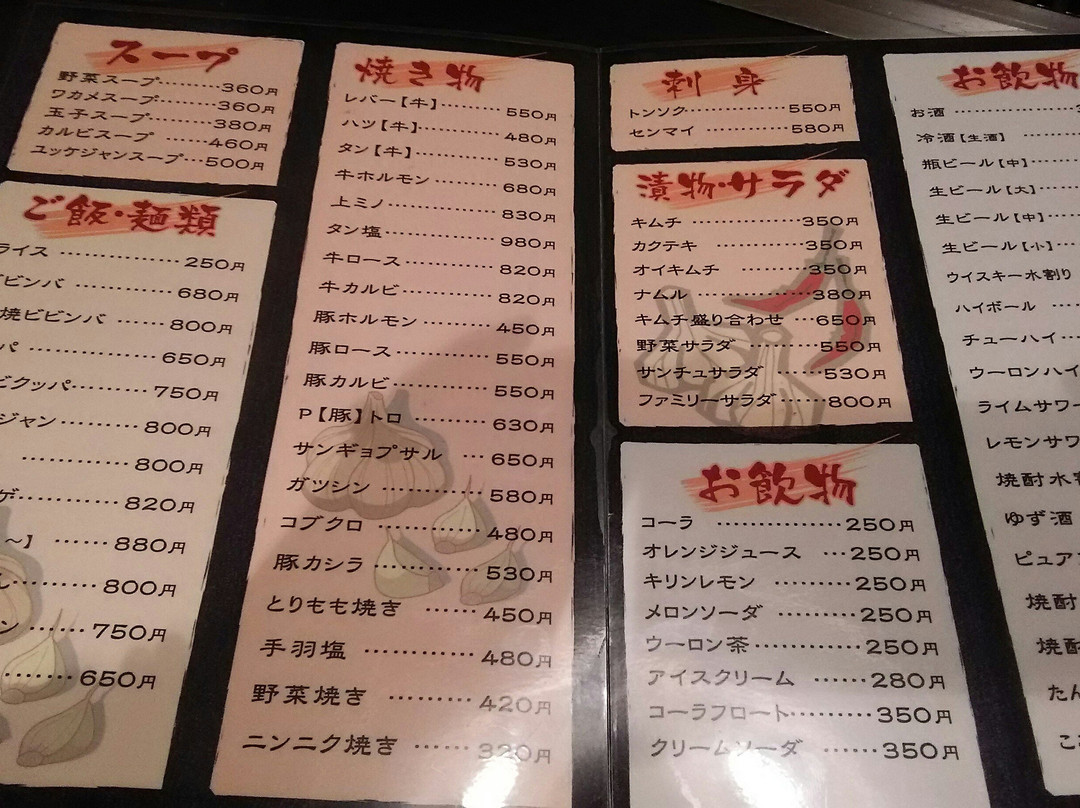 スープ
野菜スープ………360円
ワカメスープ………360円
玉子スープ………380円
カルビスープ ……460円
ユッケジャンスープ…500円
ご飯・麺類
ライス ……………250円
ビビンバ …………680円
焼ビビンバ ……800円
パ …………650円
クッパ………750円
ジャン………800円
…………800円
ゲ…………820円
～】 ……880円
…………800円
ン ……750円
………650円
焼き物
レバー【牛】………550円
ハツ【牛】…………480円
タン【牛】…………530円
牛ホルモン…………680円
上ミノ………………830円
タン塩………………980円
牛ロース……………820円
牛カルビ……………820円
豚ホルモン…………450円
豚ロース……………550円
豚カルビ……………550円
P【豚】トロ…………630円
サンギョプサル …650円
ガツシン……………580円
コブクロ ……………480円
豚カシラ……………530円
とりもも焼き ……450円
手羽塩 ……………480円
野菜焼き …………420円
ニンニク焼き ……320円
刺身
トンソク……………550円
センマイ ……………580円
漬物・サラダ
キムチ ………………350円
カクテキ ……………350円
オイキムチ …………350円
ナムル ………………380円
キムチ盛り合わせ …650円
野菜サラダ …………550円
サンチュサラダ ……530円
ファミリーサラダ ……800円
お飲物
コーラ ……………250円
オレンジジュース …250円
キリンレモン ………250円
メロンソーダ ………250円
ウーロン茶…………250円
アイスクリーム ……280円
コーラフロート………350円
クリームソーダ ……350円
お飲物
お酒 ……………
冷酒【生酒】 ……
瓶ビール【中】……
生ビール【大】……
生ビール【中】……
生ビール【小】……
ウイスキー水割り
ハイボール ……
チューハイ……
ウーロンハイ
ライムサワー
レモンサワ
焼酎水割
ゆず酒
ピュア
焼酎
焼酎
たん